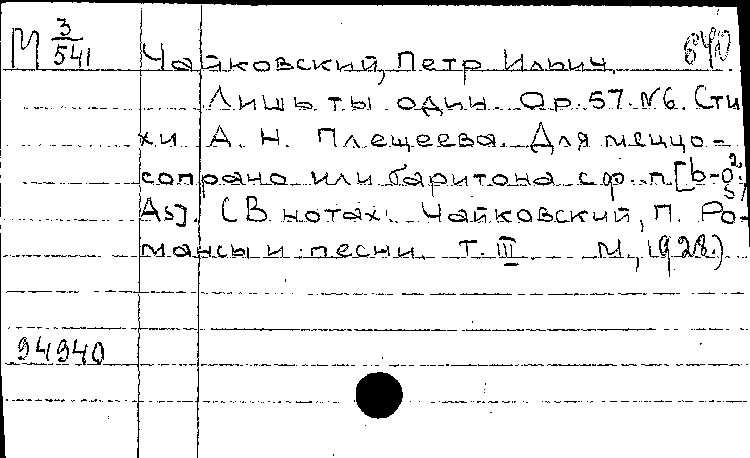 М 3/541 Чайковский, Петр Ильич. 640
Лишь ты один. Op. 57. №6. Сти-
хи А. Н. Плещеева. Для меццо-
сопрано или баритона с ф.-п. [b-g²;
As]. (В нотах: Чайковский, П. Ро-
мансы и песни. Т. III. М., 1928.)
94940